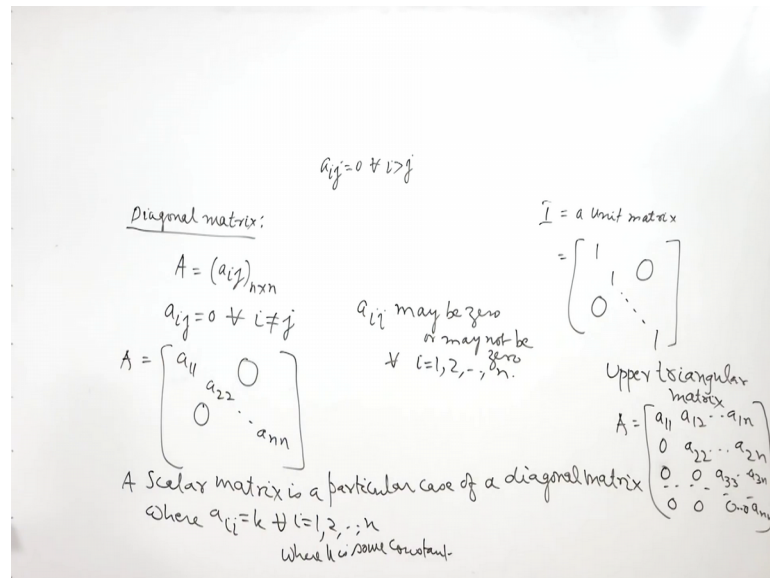 aij=0 ∀ i>j
Diagonal matrix:
A = (aij)n×n
aij=0 ∀ i≠j
A = [a11 0
a22
0 ⋱
ann]
aii may be zero
or may not be
zero
∀ i=1,2,--,n.
I = a unit matrix
= [1
1 0
0 ⋱
1]
Upper triangular
matrix
A = [a11 a12 ·· a1n
0 a22 ... a2n
0 0 a33 · a3n
-- -- -- --
0 0 0..0 ann]
A Scalar matrix is a particular case of a diagonal matrix
where aii=k ∀ i=1,2,--,n
where k is some constant.